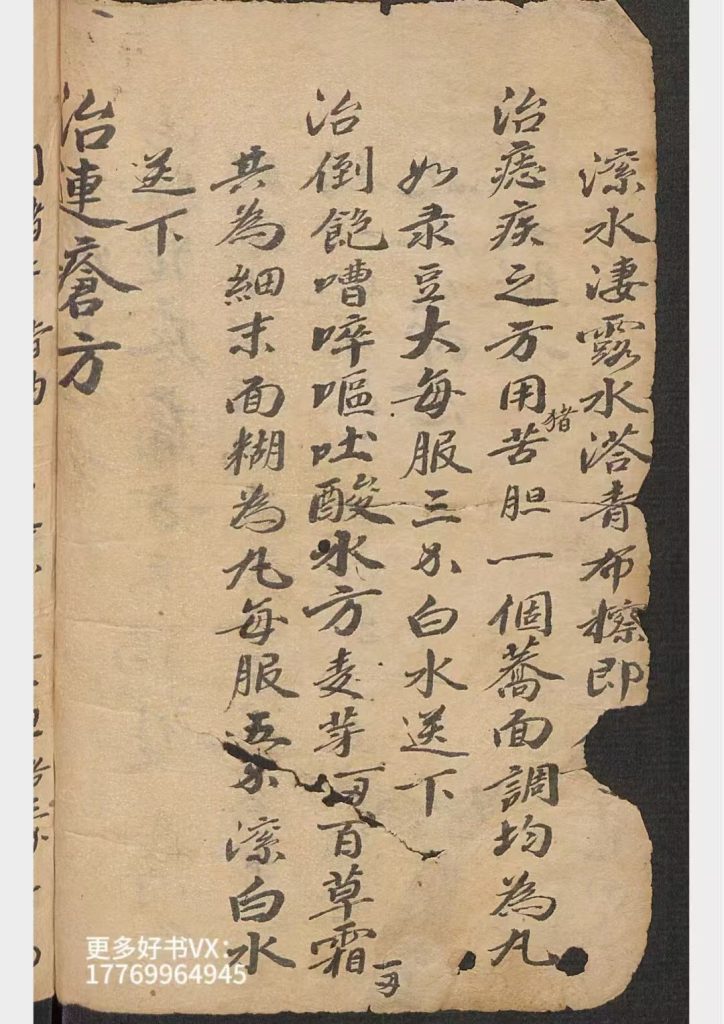 滚水淒露水溚青布擦即
治痣疾之方用猪苦胆一個蕎面調均為丸
如录豆大每服三分白水送下
治倒飽嘈啐嘔吐酸水方麦芽一両百草霜一両
共為細末面糊為丸每服五分滚白水
送下
治連瘡方
更多好书VX:
17769964945